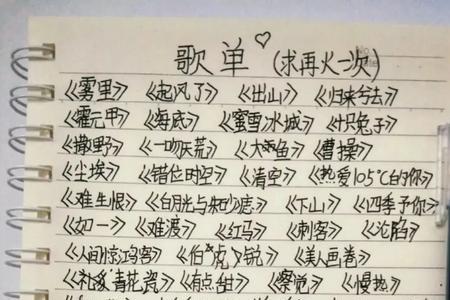 歌单♡(求再火一次)
《雾里》《起风了》《出山》《归来兮去》
《霍元甲》《海底》《蜜雪冰城》《十只兔子》
《撒野》《一吻天荒》《大鱼》《曹操》
《尘埃》《错位时空》《清空》《热爱105℃的你》
《难生恨》《白月光与朱砂痣》《下山》《四季予你》
《如一》《难渡》《红马》《刺客》《沦陷》
《人间惊鸿客》《伯虎说》《美人画卷》
《青花瓷》《有点甜》《察觉》《慢热》